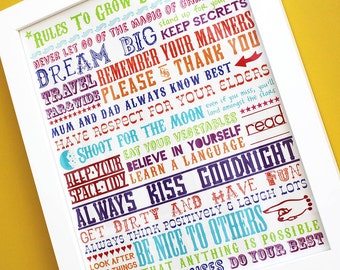 RULES TO GROW
NEVER LET GO OF THE MAGIC OF
stand up for
DREAM BIG KEEP SECRETS
TRAVEL FAR&WIDE
REMEMBER YOUR MANNERS
PLEASE & THANK YOU
MUM AND DAD ALWAYS KNOW BEST
HAVE RESPECT FOR YOUR ELDERS
SHOOT FOR THE MOON
even if you miss, you'll land amongst the stars
EAT YOUR VEGETABLES
KEEP YOUR SPACE TIDY
BELIEVE IN YOURSELF
read
LEARN A LANGUAGE
ALWAYS KISS GOODNIGHT
GET DIRTY AND HAVE FUN
Always think positively & LAUGH LOTS
LOOK AFTER THINGS
BE NICE TO OTHERS
THAT ANYTHING IS POSSIBLE
DO YOUR BEST